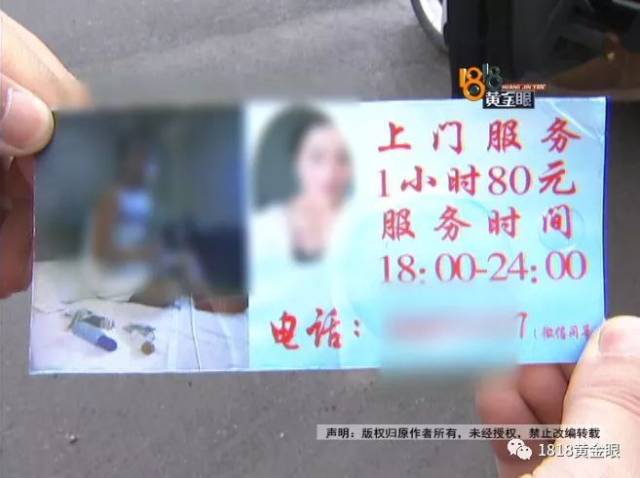 1818
HUANG JIN YAN
黄金眼
上门服务
1小时80元
服务时间
18:00-24:00
电话： 7（微信同号
声明：版权归原作者所有，未经授权，禁止改编转载
1818黄金眼